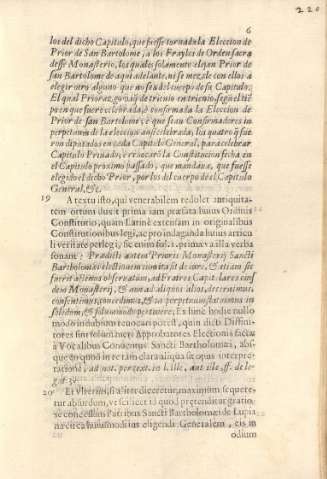 220
6
los del dicho Capitulo, que fuesse tornada la Eleccion de
Prior de San Bartolome, a los Frayles de Orden sacra
desse Monasterio, los quales solamente elijan Prior de
San Bartolome de aqui adelante, ni se mezcle con ellos a
elegir otro alguno que no sea del cuerpo de su Capitulo.
El qual Priorazgo sea de trienio en trienio, segun el tiem
po en que fuere celebrada, è confirmada la Eleccion de
Prior de San Bartolome; è que sean Confirmadores in
perpetuum de la eleccion assi celebrada, los quatro que fue
ron diputados en cada Capitulo General, para celebrar
Capitulo Privado; è revocaron la Constitucion fecha en
el Capitulo proximo passado, que mandava, que fuesse
elegido el dicho Prior, por los del cuerpo de el Capitulo
General, &c.
19 A textu isto, qui venerabilem redolet antiquita
tem ortum ducit prima iam præfata huius Ordinis
Constitutio, quam Latinè extensam in originalibus
Constitutionibus legi, ac pro indaganda huius articu
li veritate perlegi, sic enim sunt prima verba
sonant: Prædicti autem Prioris Monasterij Sancti
Bartholomæi electionem
dem Monasterij, & nunc ad
sentimus, concedimus, & in perpetuum statuimus in
solidum, & fiducia. Ex hinc hodie nullo
modo indubium revocari potest, quin dicti Diffini-
tores sint Approbatores Electionis factæ
a Vocalibus Conventus Sancti Bartholomæi, abs-
que eo quod in re tam clara aliqua sit opus interpre-
tatione, ad not. per text. in l. ille, aut ille, ff. de le-
gat. 3.
20 Et ulterius, si aliter diceretur, maximum seque re-
tur absurdum, ut scilicet id quod prætenditur gratio
sè concessum Patribus Sancti Bartholomæi de Lupia
na circa huiusmodi ius eligendi Generalem, eis in
odium